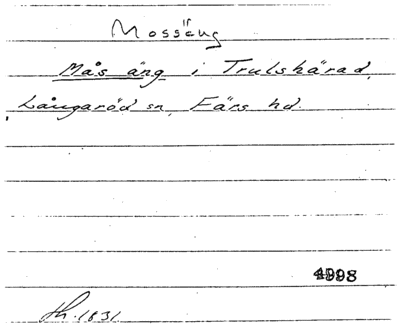 Mossäng
Mås äng i Trulshärad,
Långaröd sn, Färs hd.
4998
1831